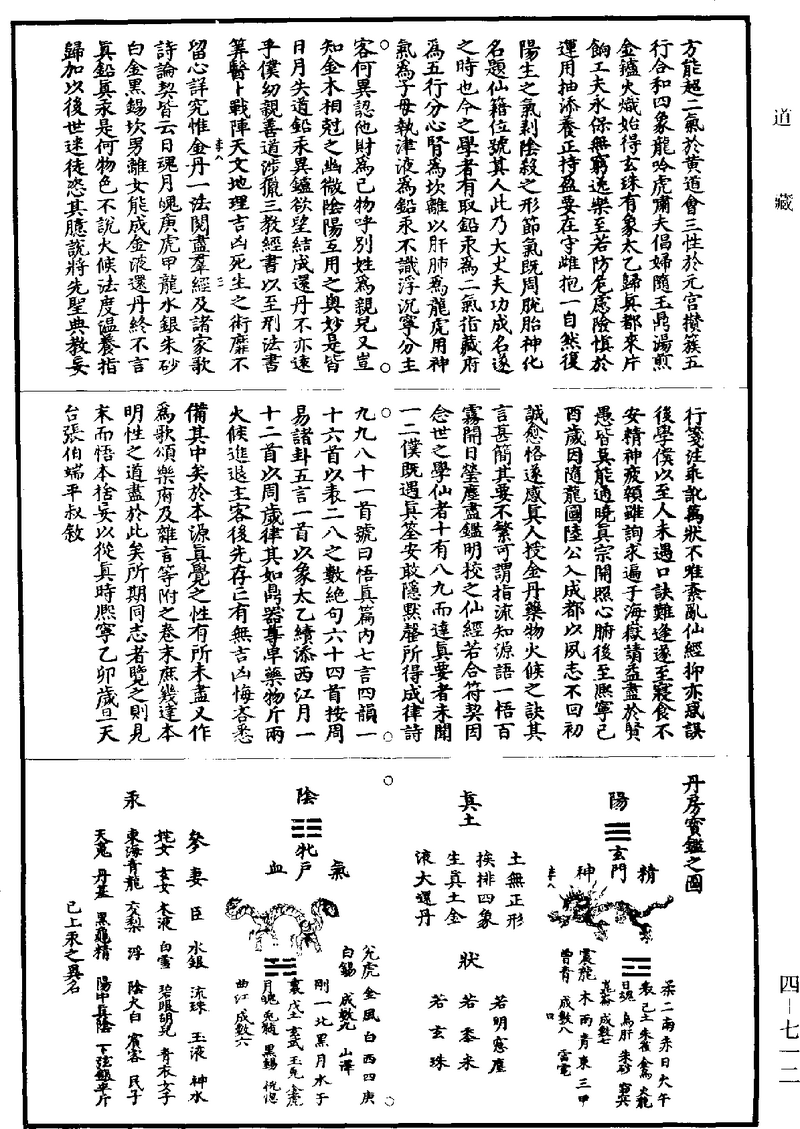 道藏
方能超二氣於黄道會三性於元宫攅簇五
行合和四象龍吟虎嘯夫倡婦隨玉鼎湯煎
金鑪火熾始得玄珠有象太乙歸眞都來片
餉工夫永保無窮逸樂至若防危慮險愼於
運用抽添養正持盈要在守雌抱一自然復
陽生之氣剥陰殺之形節氣既周脱胎神化
名題仙籍位號眞人此乃大丈夫功成名遂
之時也今之學者有取鉛汞爲二氣指藏府
爲五行分心腎爲坎離以肝肺爲龍虎用神
氣爲子母執津液爲鉛汞不識浮沉寧分主
客何異認他財爲己物呼別姓爲親兒又豈
知金木相尅之幽微陰陽互用之奥妙是皆
日月失道鉛汞異鑪欲望結成還丹不亦遠
乎僕幼親善道涉獵三教經書以至刑法書
筭醫卜戰陣天文地理吉凶死生之術靡不
留心詳究惟金丹一法閱盡羣經及諸家歌
詩論契皆云日魂月魄庚虎甲龍水銀朱砂
白金黑錫坎男離女能成金液還丹終不言
眞鉛眞汞是何物色不說火候法度温養指
歸加以後世迷徒恣其臆說將先聖典教妄
行箋註乖訛萬狀不唯紊亂仙經抑亦惑誤
後學僕以至人未遇口訣難逢遂至寢食不
安精神疲顇雖詢求遍于海嶽請益盡於賢
愚皆莫能通曉眞宗開照心腑後至熙寧己
酉歲因隨龍圖陸公入成都以夙志不回初
誠愈恪遂感眞人授金丹藥物火候之訣其
言甚簡其要不繁可謂指流知源語一悟百
霧開日瑩塵盡鑑明挍之仙經若合符契因
念世之學仙者十有八九而達眞要者未聞
一二僕既遇眞筌安敢隱默罄所得成律詩
九九八十一首號曰悟眞篇内七言四韻一
十六首以表二八之數絶句六十四首按周
易諸卦五言一首以象太乙續添西江月一
十二首以周歲律其如鼎器尊卑藥物斤兩
火候進退主客後先存亡有無吉凶悔吝悉
備其中矣於本源眞覺之性有所未盡又作
爲歌頌樂府及雜言等附之卷末庶幾達本
明性之道盡於此矣所期同志者覽之則見
末而悟本捨妄以從眞時熙寧乙卯歲旦天
台張伯端平叔敘
丹房寳鑑之圖
陽
玄門
精
神
柔二南赤日火午
表己土朱雀禽鳥炎龍
日魂烏肝朱砂
成數七
震龍木雨青東三甲
曾青成數八雷電
眞土
土無正形
挨排四象
生眞土金
液大還丹
狀
若明窓塵
若黍米
若玄珠
陰
牝戶
氣
血
兌虎金風白西四庚
白錫成數九山澤
剛一北黑月水子
裏戊土玄武玉兔金虎
月魄兎髓黑錫恍惚
曲江成數六
汞
參妻臣水銀流珠玉液神水
姹女玄女木液白雪碧眼胡兒青衣女子
東海青龍交梨浮陰火白賓客民子
天魂丹基黑龜精陽中眞陰下弦銀半斤
已上汞之異名
四—七一二